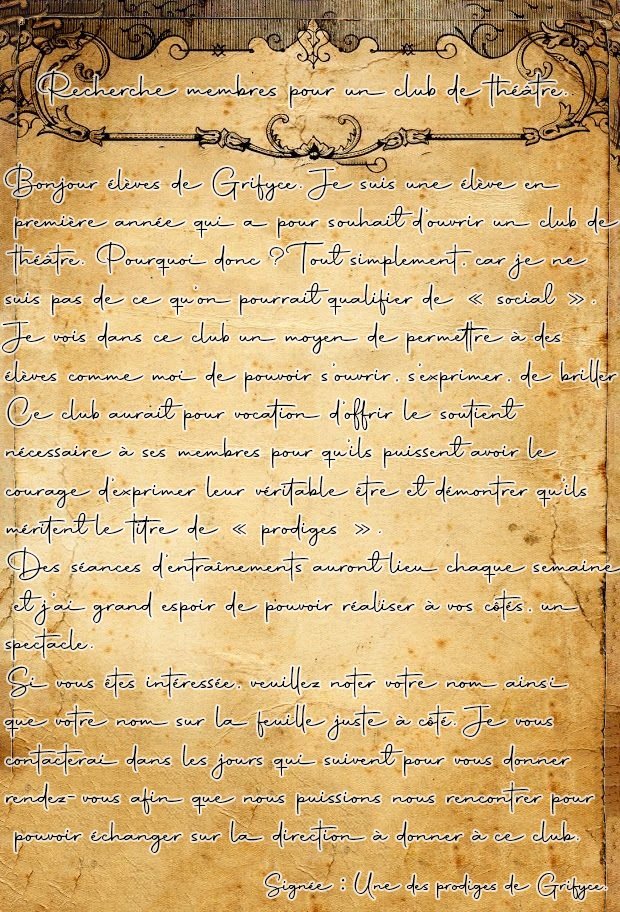 Recherche membres pour un club de théâtre..
Bonjour élèves de Grifyce. Je suis une élève en
première année qui a pour souhait d'ouvrir un club de
théâtre. Pourquoi donc ? Tout simplement, car je ne
suis pas de ce qu'on pourrait qualifier de « social ».
Je vois dans ce club un moyen de permettre à des
élèves comme moi de pouvoir s'ouvrir, s'exprimer, de briller
Ce club aurait pour vocation d'offrir le soutient
nécessaire à ses membres pour qu'ils puissent avoir le
courage d'exprimer leur véritable être et démontrer qu'ils
méritent le titre de « prodiges ».
Des séances d'entraînements auront lieu chaque semaine
et j'ai grand espoir de pouvoir réaliser à vos côtés, un
spectacle.
Si vous êtes intéressée, veuillez noter votre nom ainsi
que votre nom sur la feuille juste à côté. Je vous
contacterai dans les jours qui suivent pour vous donner
rendez-vous afin que nous puissions nous rencontrer pour
pouvoir échanger sur la direction à donner à ce club.
Signée : Une des prodiges de Grifyce.